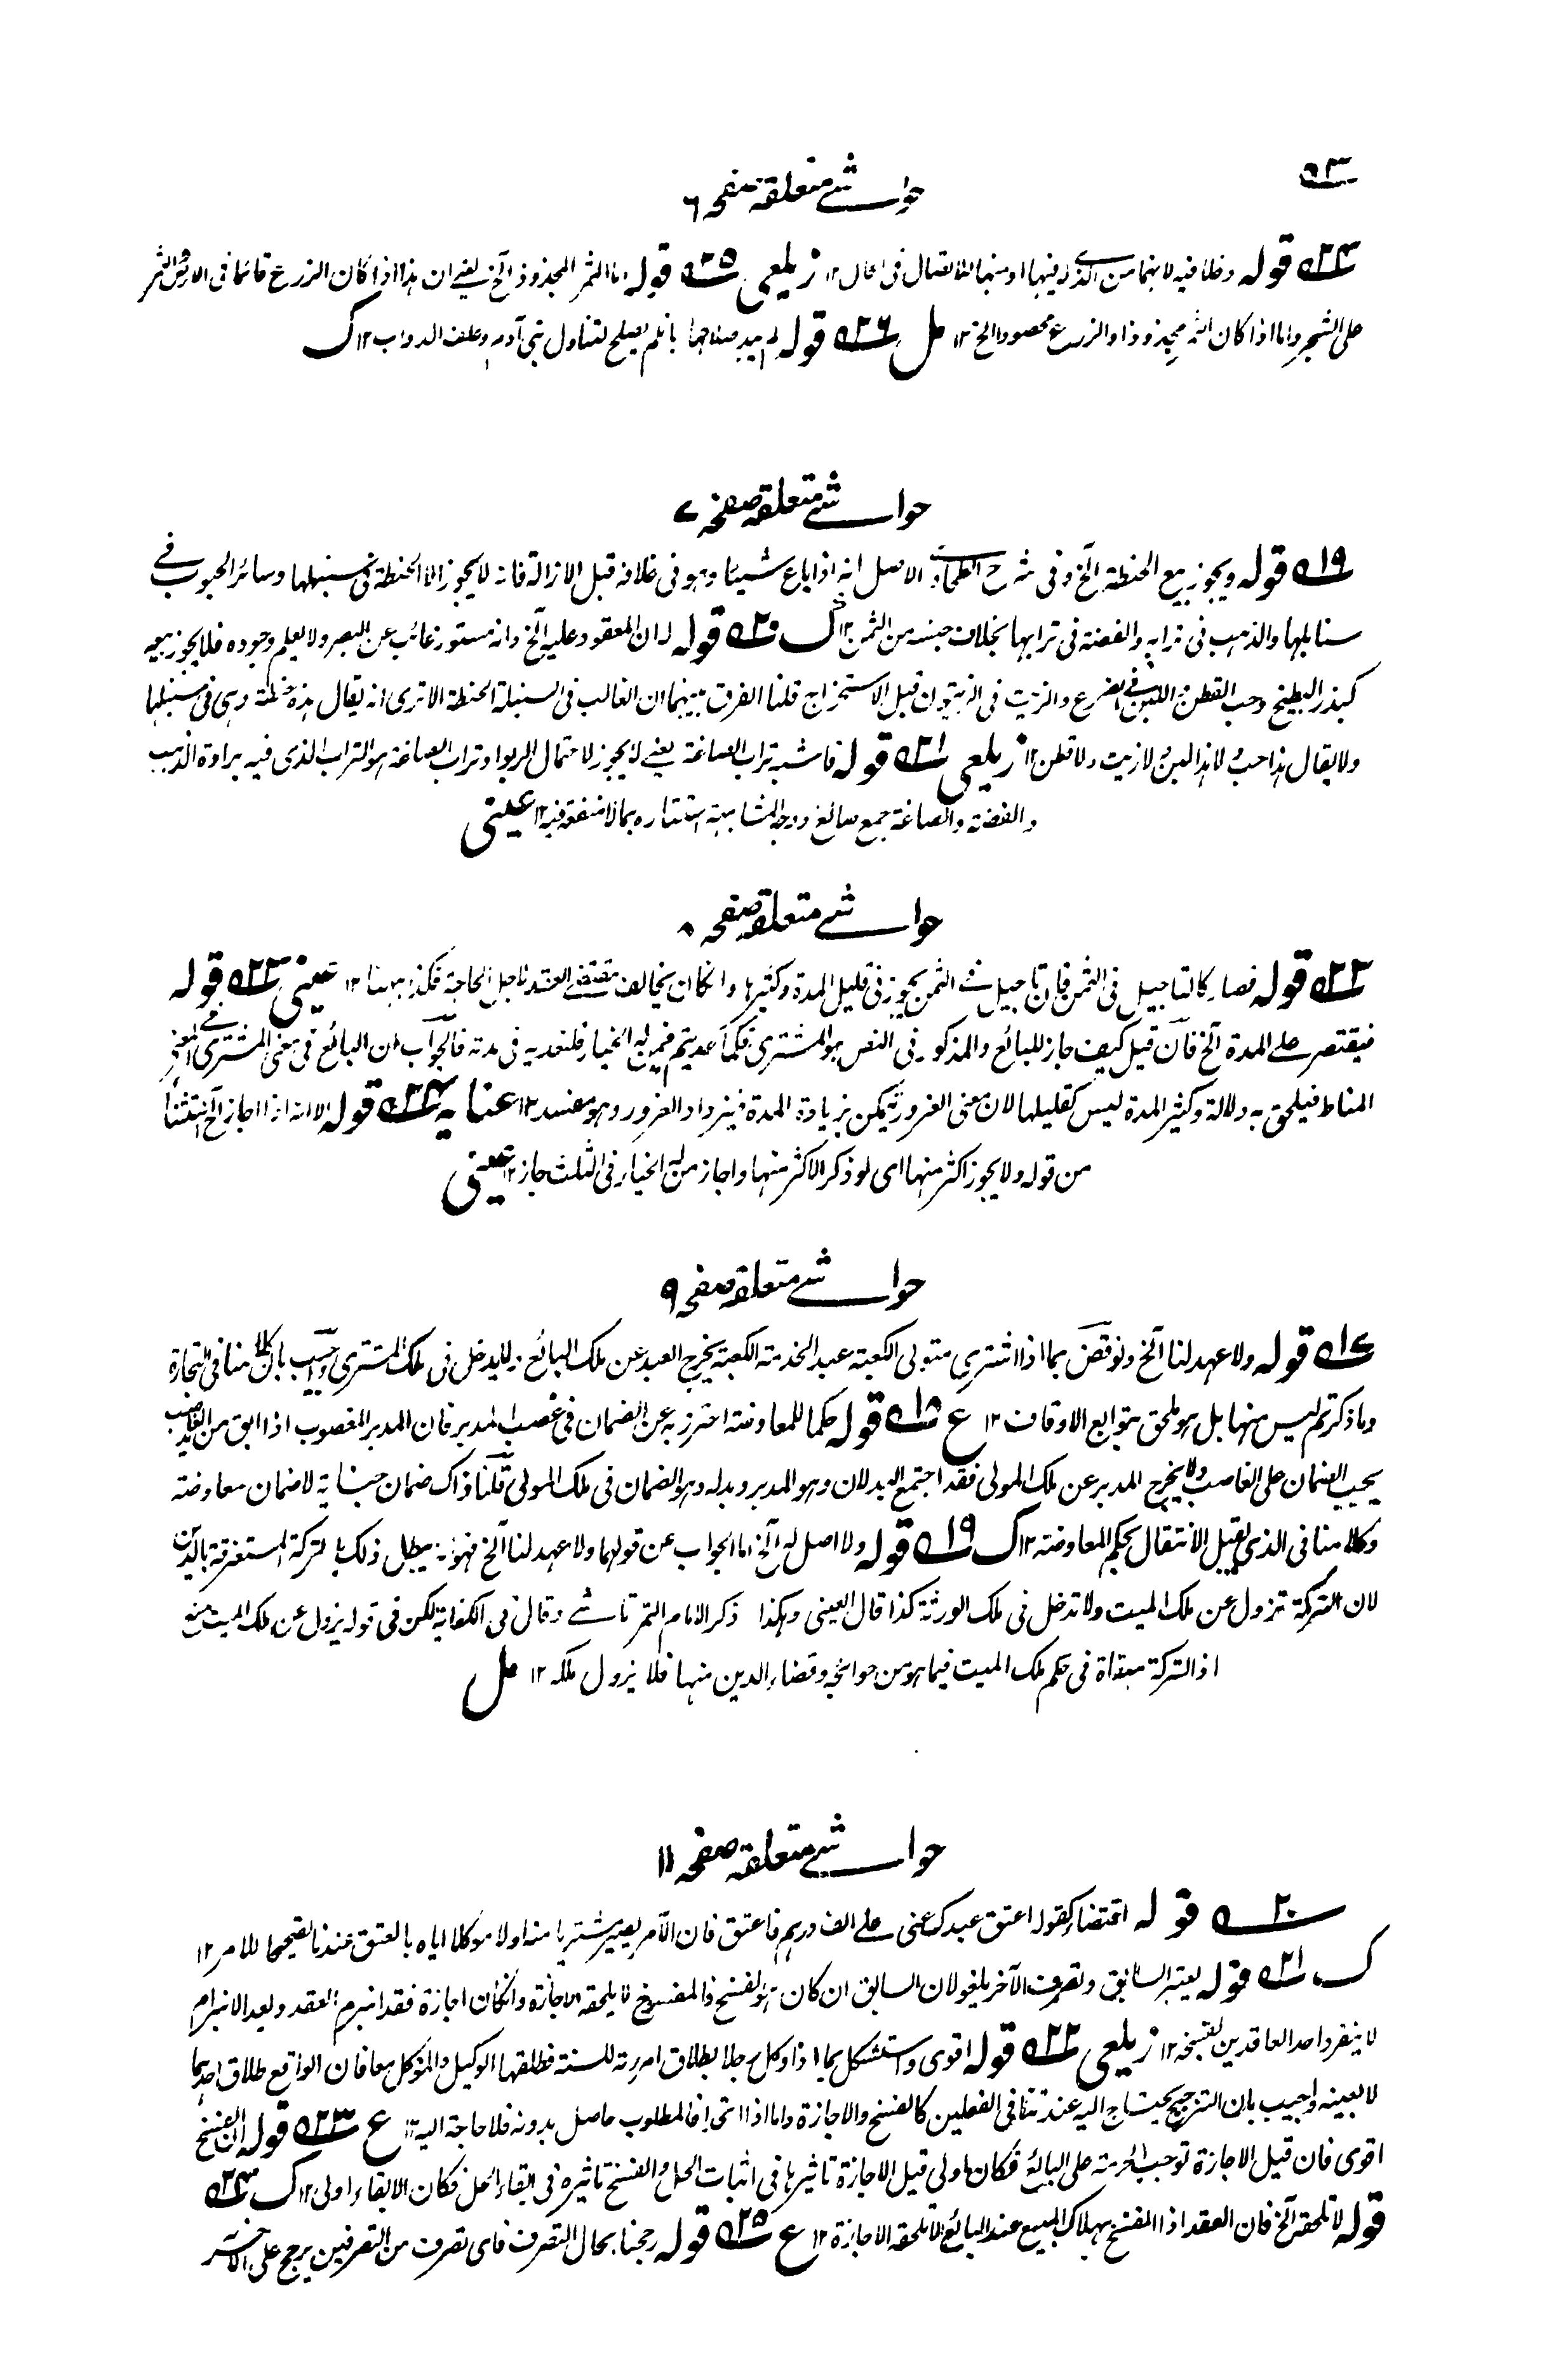 ٥٣
حواشے متعلقہ صفحہ ٦
٢٤ قوله وخلافيه لانهما من الدليل فيهما او منهما للاتصال فى الحال ١٢ زيلعى ٢٥ قوله اما الثمر المجذوذ الخ يعنے ان هذا اذا كان الزرع قائما فى الارض والثمر
على الشجر واما اذا كان الثمر مجذوذا والزرع محصودا الخ ١٢ مل ٢٦ قوله لم يبد صلاحها بان لم يصلح لتناول بنى آدم وعلف الدواب ١٢ ك
حواشے متعلقہ صفحہ ٧
١٩ قوله ويجوز بيع الحنطة الخ وفى شرح الطحاوى الاصل انه اذا باع شيئا وهو فى غلافه قبل الازالة فانه لا يجوز الا الحنطة فى سنبلها وسائر الحبوب فے
سنابلها والذهب فى ترابه والفضة فى ترابها بخلاف جنسه من الثمن ١٢ ك ٢٠ قوله لان المعقود عليه الخ وانه مستور غائب عن البصر ولا يعلم وجوده فلا يجوز بيعه
كبذر البطيخ وحب القطن واللبن فے الضرع والزيت فى الزيتون قبل الاستخراج قلنا الفرق بينهما ان الغالب فى السنبلة الحنطة الا ترى انه يقال هذه حنطة وهى فى سنبلها
ولا يقال هذا حب ولا هذا لبن ولا زيت ولا قطن ١٢ زيلعى ٢١ قوله فاشبه تراب الصاغة يعنے لا يجوز لاحتمال الربوا وتراب الصاغة هو التراب الذى فيه برادة الذهب
والفضة والصاغة جمع صائغ ووجه المشابهة استتاره بما لا منفعة فيه ١٢ عينى
حواشے متعلقہ صفحہ ٨
٢٢ قوله فصار كالتاجيل فى الثمن فان تاجيل الثمن يجوز فى قليل المدة وكثيرها وانكان يخالف مقتضے العقد لاجل الحاجة فكذا ههنا ١٢ عينى ٢٣ قوله
فيقتصر علے المدة الخ فان قيل كيف جاز للبائع والمذكور فى النص هو المشترى فكما عديتم فيمن له الخيار فلنعديه فى مدته فالجواب ان البائع فى معنى المشترى فے المعنى
المناط فيلحق به دلالة وكثير المدة ليس كقليلها لان معنى الغرر يتمكن بزيادة المدة فيزداد الغرر وهو مفسد ١٢ عناية ٢٤ قوله الا انه اذا اجاز الخ استثناء
من قوله ولا يجوز اكثر منها اى لو ذكر الاكثر منها واجاز من له الخيار فى الثلث جاز ١٢ عينى
حواشے متعلقہ صفحہ ٩
١٧ قوله ولا عهد لنا الخ ونوقض بما اذا اشترى متولى الكعبة عبدا لخدمة الكعبة يخرج العبد عن ملك البائع ولا يدخل فى ملك المشترى واجيب بان كلامنا فى التجارة
وما ذكرتم ليس منها بل هو ملحق بتوابع الاوقاف ١٢ ع ١٨ قوله حكما للمعاوضة احترز به عن الضمان فى غصب المدبر فان المدبر المغصوب اذا ابق من يد الغاصب
يجب الضمان على الغاصب ولا يخرج المدبر عن ملك المولى فقد اجتمع البدلان وهو المدبر وبدله وهو الضمان فى ملك المولى قلنا ذاك ضمان جناية لا ضمان معاوضة
وكلامنا فى الذى يقبل الانتقال بحكم المعاوضة ١٢ ك ١٩ قوله ولا اصل له الخ اما الجواب عن قولهما ولا عهد لنا الخ فهو انه يبطل ذلك بالتركة المستغرقة بالدين
لان التركة تزول عن ملك الميت ولا تدخل فى ملك الورثة كذا قال العينى وهكذا ذكر الامام التمرتاشے وقال فى الكفاية لكن فى قوله يزول عن ملك الميت منع
اذ التركة مبقاة فى حكم ملك الميت فيما هو من حوائجه وقضاء الدين منها فلا يزول ملكه ١٢ مل
حواشے متعلقہ صفحہ ١١
٢٠ قوله اقتضاء كقوله اعتق عبدك عنى علے الف درهم فاعتق فان الآمر يصير مشتريا منه اولا موكلا اياه بالعتق عندنا تصحيحا للامر ١٢
ك ٢١ قوله يعتبر السابق وتصرف الآخر يلغو لان السابق ان كان هو الفسخ فالمفسوخ لا يلحقه الاجازة وانكان اجازة فقد انبرم العقد وبعد الانبرام
لا ينفرد احد العاقدين بفسخه ١٢ زيلعى ٢٢ قوله اقوى واستشكل بما اذا وكل رجلا بطلاق امرءته للسنة فطلقها الوكيل والموكل معا فان الواقع طلاق احدهما
لا بعينه واجيب بان الترجيح يحتاج اليه عند تنافى الفعلين كالفسخ والاجازة واما اذا اتحدا فالمطلوب حاصل بدونه فلا حاجة اليه ١٢ ع ٢٣ قوله لان الفسخ
اقوى فان قيل الاجازة توجب الحرمة على البائع فكان اولى قيل الاجازة تاثيرها فى اثبات الحل والفسخ تاثيره فى ابقاء الحل فكان الابقاء اولى ١٢ ك ٢٤
قوله لا تلحقه الخ فان العقد اذا انفسخ بهلاك المبيع عند البائع لا تلحقه الاجازة ١٢ ع ٢٥ قوله رجحنا بحال التصرف فاى تصرف من التصرفين يرجح على الآخر